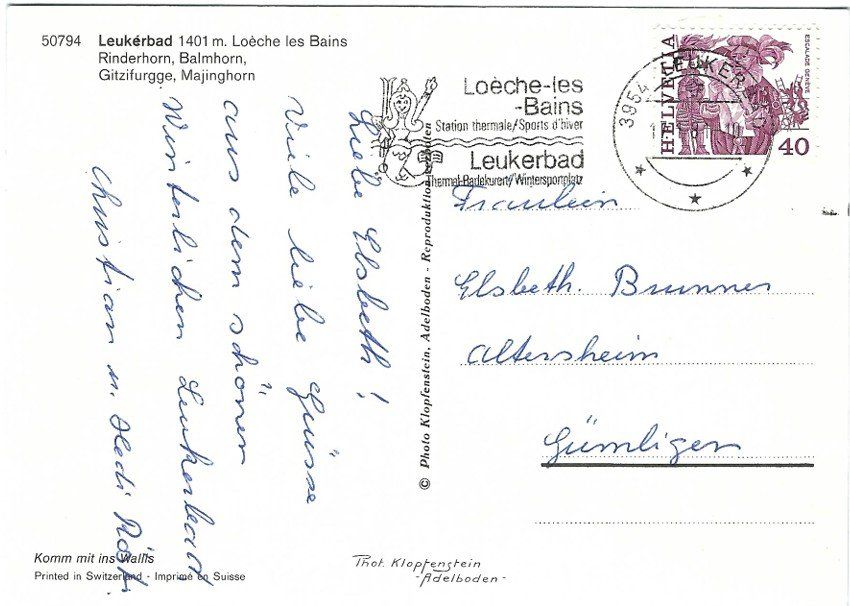 50794 Leukerbad 1401 m. Loèche les Bains
Rinderhorn, Balmhorn,
Gitzifurgge, Majinghorn
Liebe Elsbeth!
Viele liebe Grüsse
aus dem schönen
Winterlichen Leukerbad
Christian u. Hedi
Komm mit ins Wallis
Printed in Switzerland - Imprimé en Suisse
© Photo Klopfenstein, Adelboden - Reproduktion verboten
Phot. Klopfenstein
-Adelboden-
Loèche-les
-Bains
Station thermale/Sports d'hiver
Leukerbad
Thermal-Badekurort/Wintersportplatz
3954 LEUKERBAD
HELVETIA
ESCALADE GENÈVE
40
Fräulein
Elsbeth. Brunner
Altersheim
Gümligen